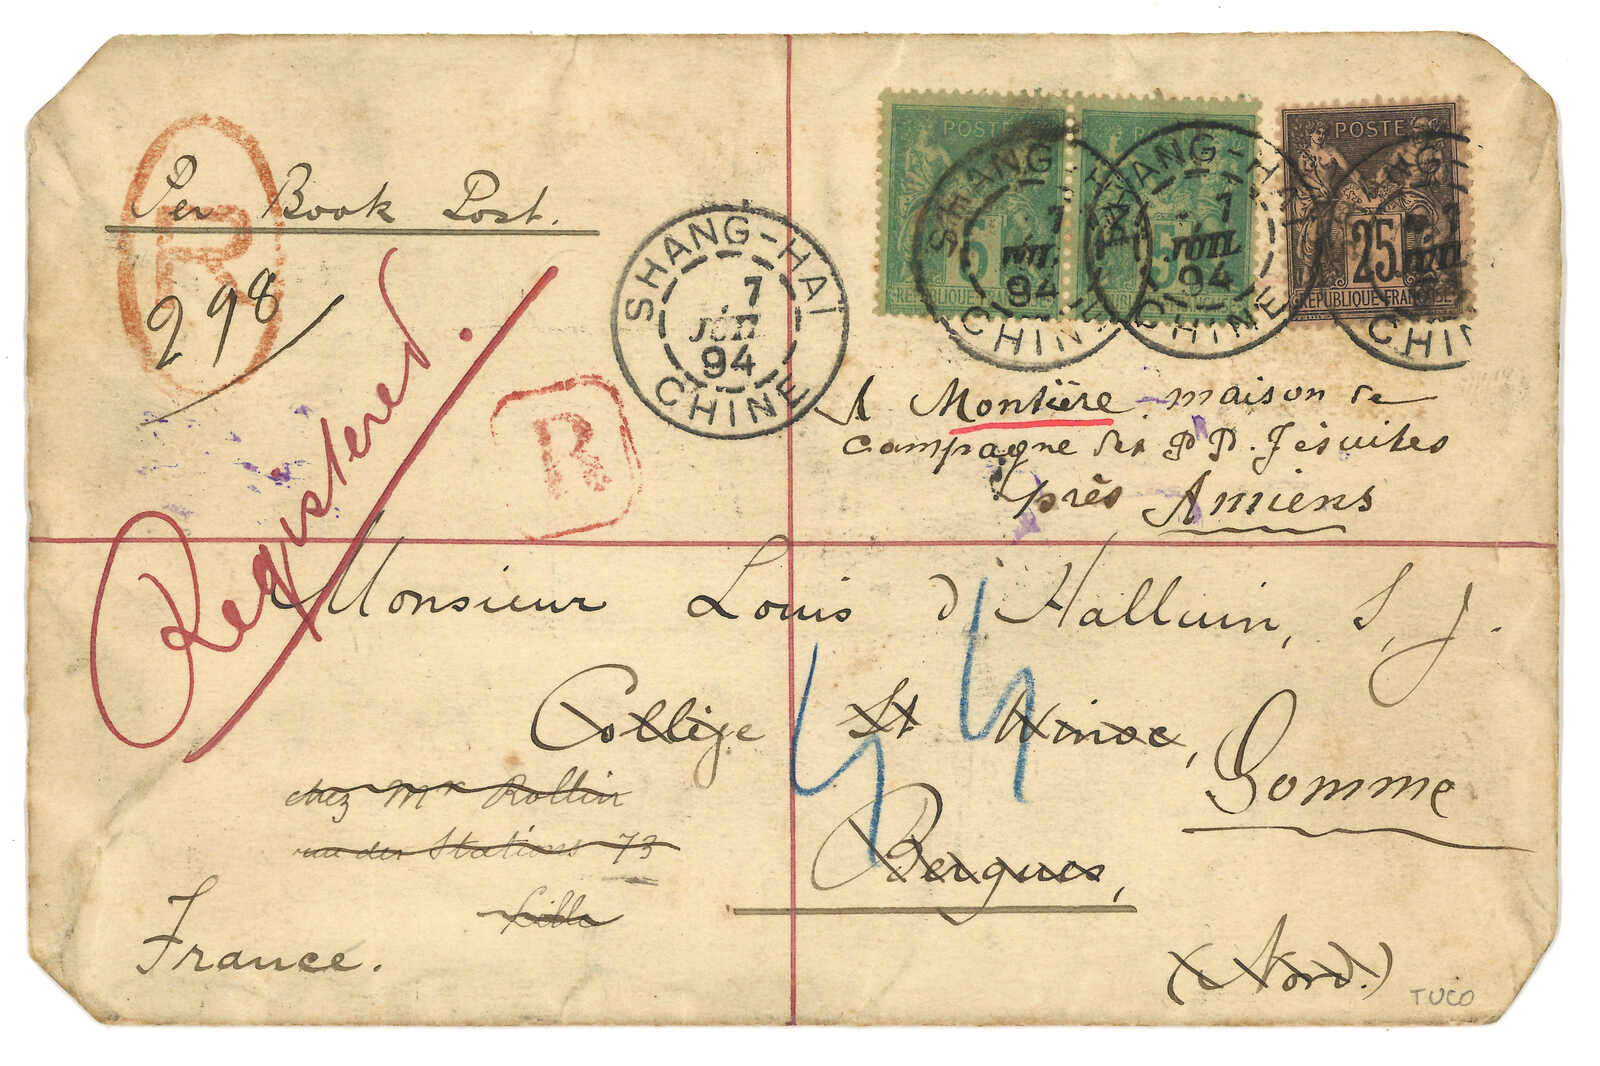 Per Book Post.
R
298
Registered.
R
SHANG-HAÏ
7
JUIL
94
CHINE
POSTE
5
SHANG-HAÏ
7
JUIL
94
CHINE
POSTE
5
RÉPUBLIQUE
SHANG-HAÏ
7
JUIL
94
CHINE
POSTE
25
RÉPUBLIQUE FRANÇAISE
CHINE
A Montière maison de
campagne des PP. Jésuites
près Amiens
Monsieur Louis d'Halluin, S, J.
Collège St Winoc,
Somme
chez Mr Rollin
rue des Stations 73
Bergues,
Lille
France.
(Nord.)
TUCO